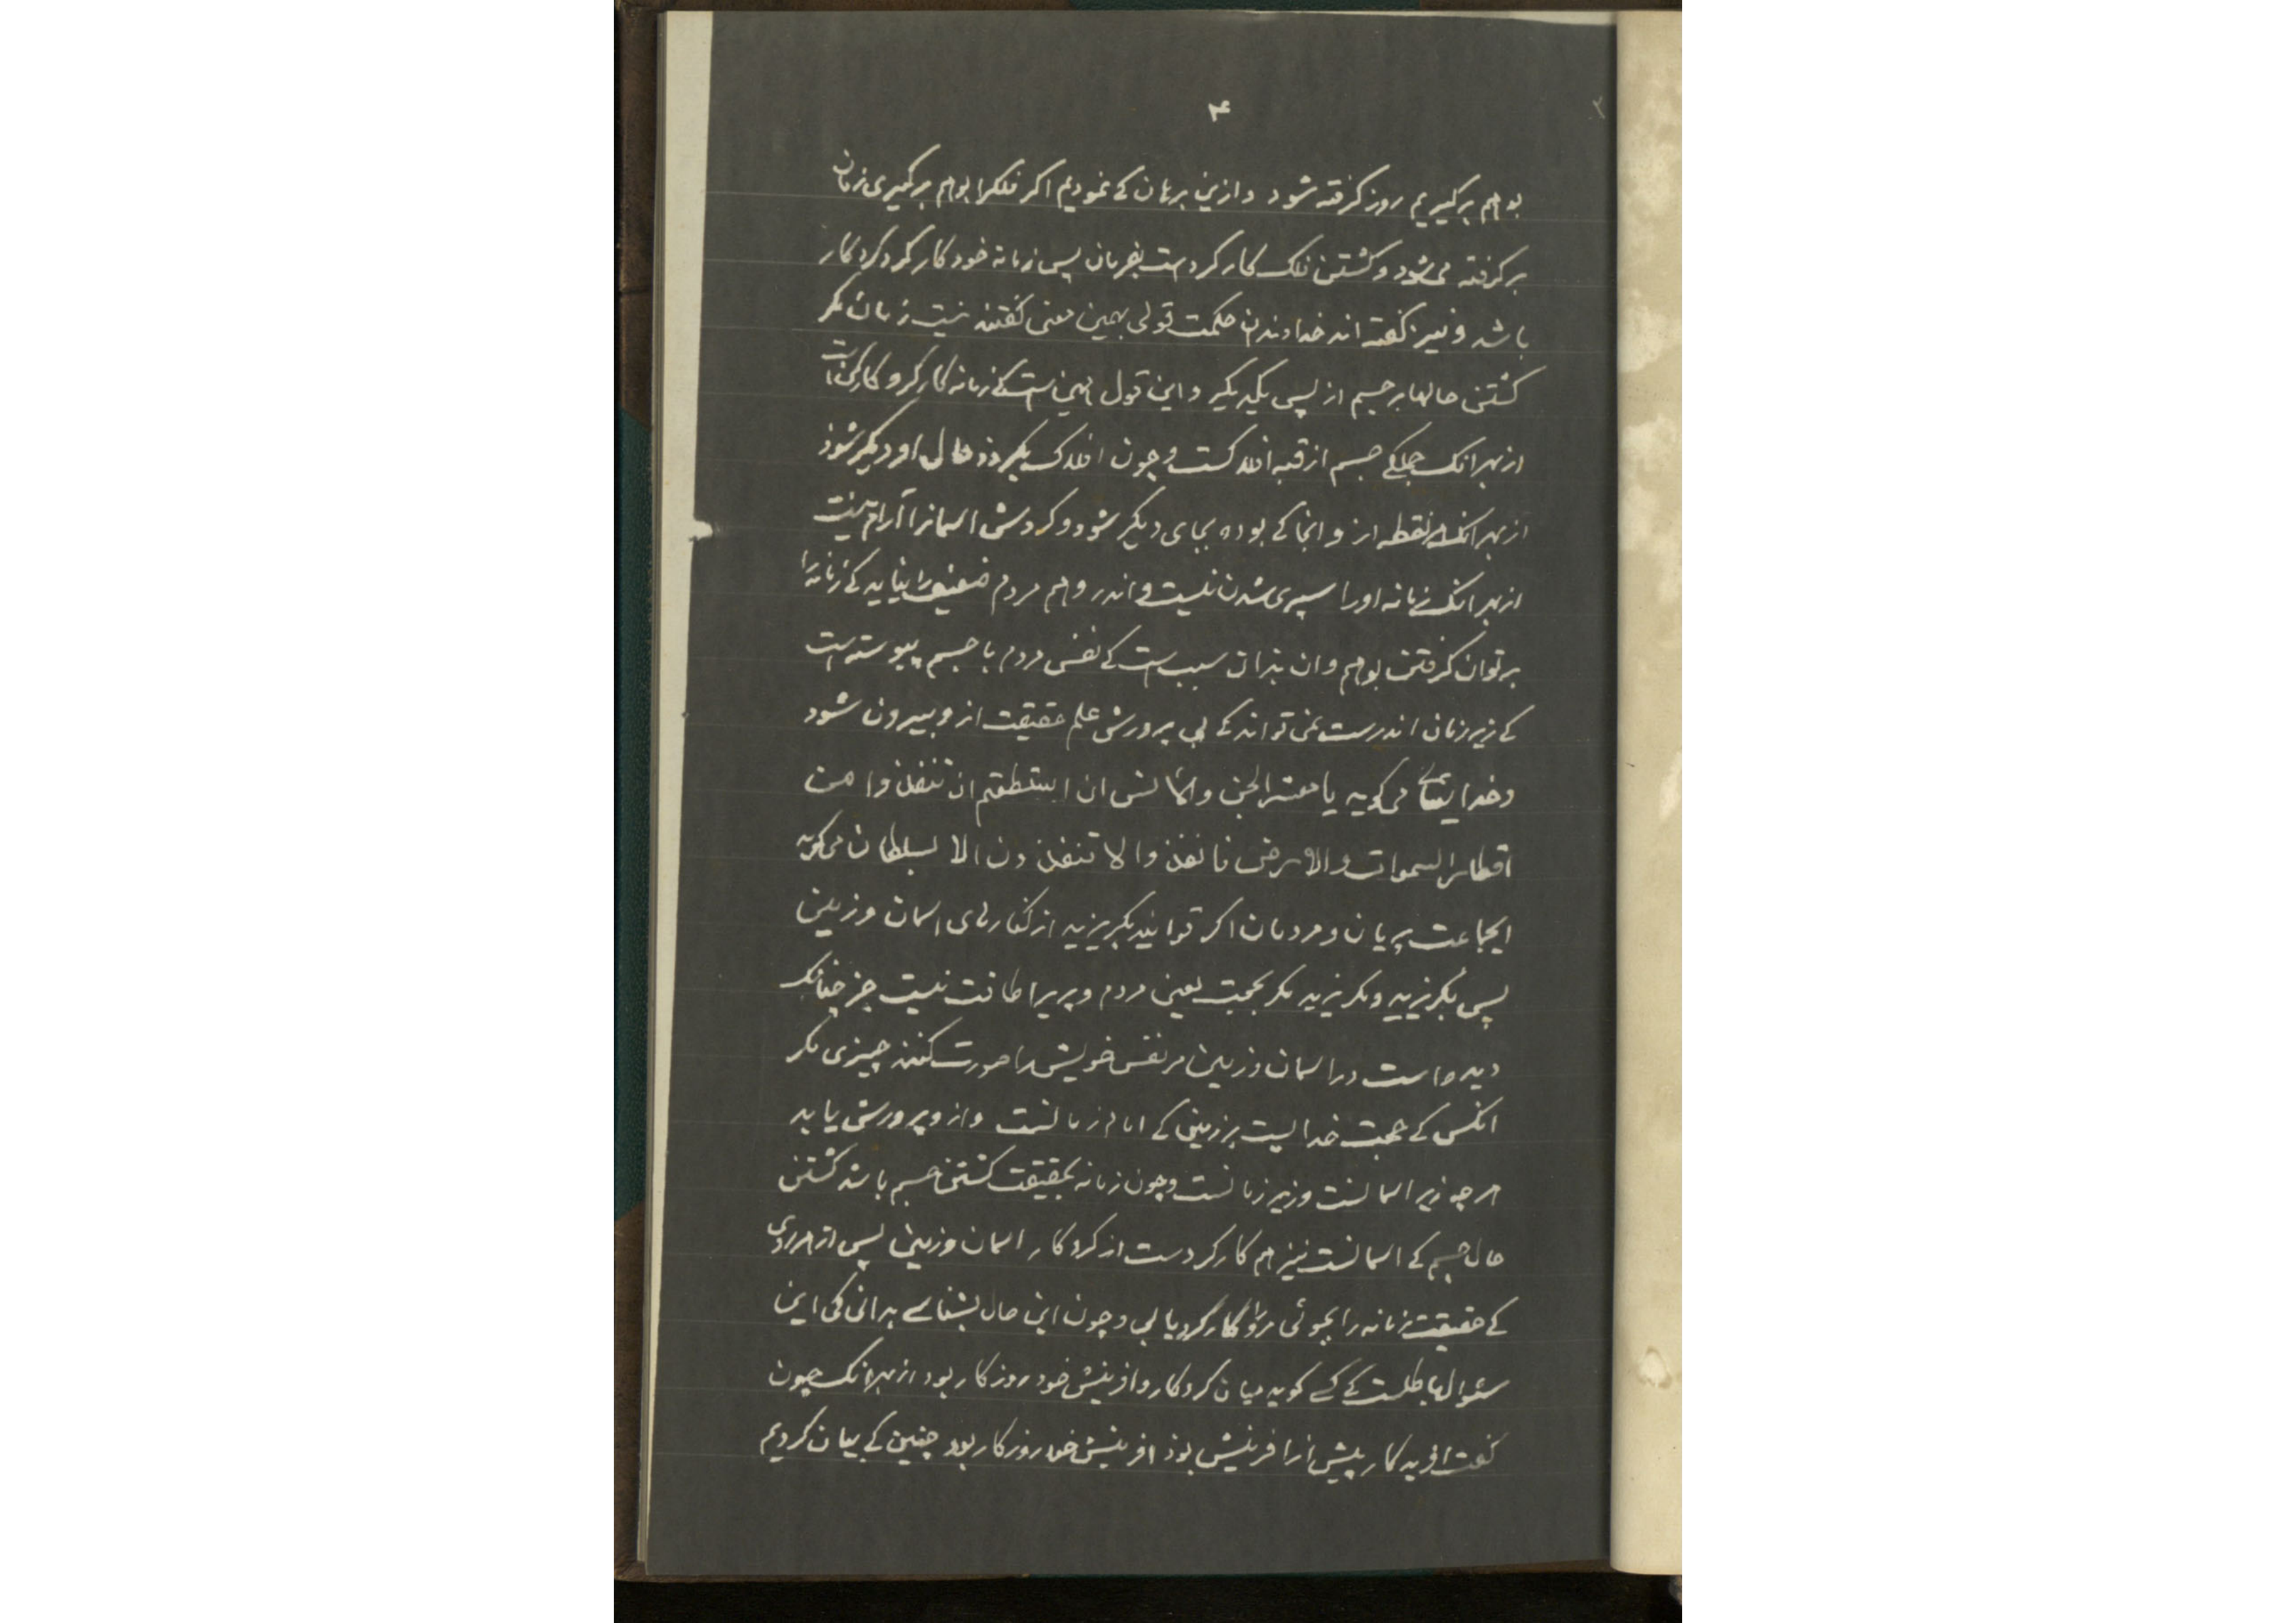 ۴
بوهم برگیریم روز گرفته شود و ازین برهان کے نمودیم اکر فلکرا بوهم برگیری زمان
برگرفته می شود و گشتن فلک کار کردست بفرمان پس زمانه خود کار کرد کردکار
باشد و نیز گفته اند خداوندان حکمت قولی بهمین معنی گفتند نیست زمان مگر
گشتن حالها بر جسم از پس یکدیگر و این قول همین است کے زمانه کار کرد کارکن است
از بهر انک جملکے جسم از قبه افلاکست و چون افلاک بگردذ حال او دیگر شوذ
از بهر انک هر نقطه از و انجا کے بوده بجای دیگر شود و کردش اسمانرا آرام نیست
از بهر انک زمانه اورا سپری شدن نیست و اندر وهم مردم ضعیف را نیاید کے زمانه را
بر توان گرفتن بوهم و ان بذان سبب است کے نفس مردم با جسم پیوسته است
کے زیر زمان اندرست نمی تواند کے بی پرورش علم حقیقت از و بیرون شود
و خدا یتعالی می کوید یا معشر الجن و الانس ان استطعتم ان تنفذوا من
اقطار السموات والارض فانفذوا لا تنفذون الا بسلطان می کوید
ایجماعت پریان و مردمان اکر توانید بکریزید از کنارهای اسمان و زمین
پس بگریزید و نکریزید مکر بحجت یعنی مردم و پریرا طاقت نیست جز چنانک
دیده است در اسمان و زمین مر نفس خویش را صورت کنند چیزی مکر
انکس کے حجت خدایست بر زمین کے امام زمانست و از و پرورش یابد
هر چه زیر اسمانست و زیر زمانست و چون زمانه بحقیقت گشتن جسم باشد گشتن
حال جسم کے اسمانست نیز هم کار کردست از کردکار اسمان و زمین پس از هر روی
کے حقیقت زمانه را بجوئی مر او را کار کرد یابی و چون این حال بشناسے بدانی کی این
سئوالها باطلست کے کسے کوید میان کردکار و افرینش خود روزکار بود از بهر انک چون
گفت افریدکار پیش از افرینش بوذ افرینش خود روزکار بود چنین کے بیان کردیم